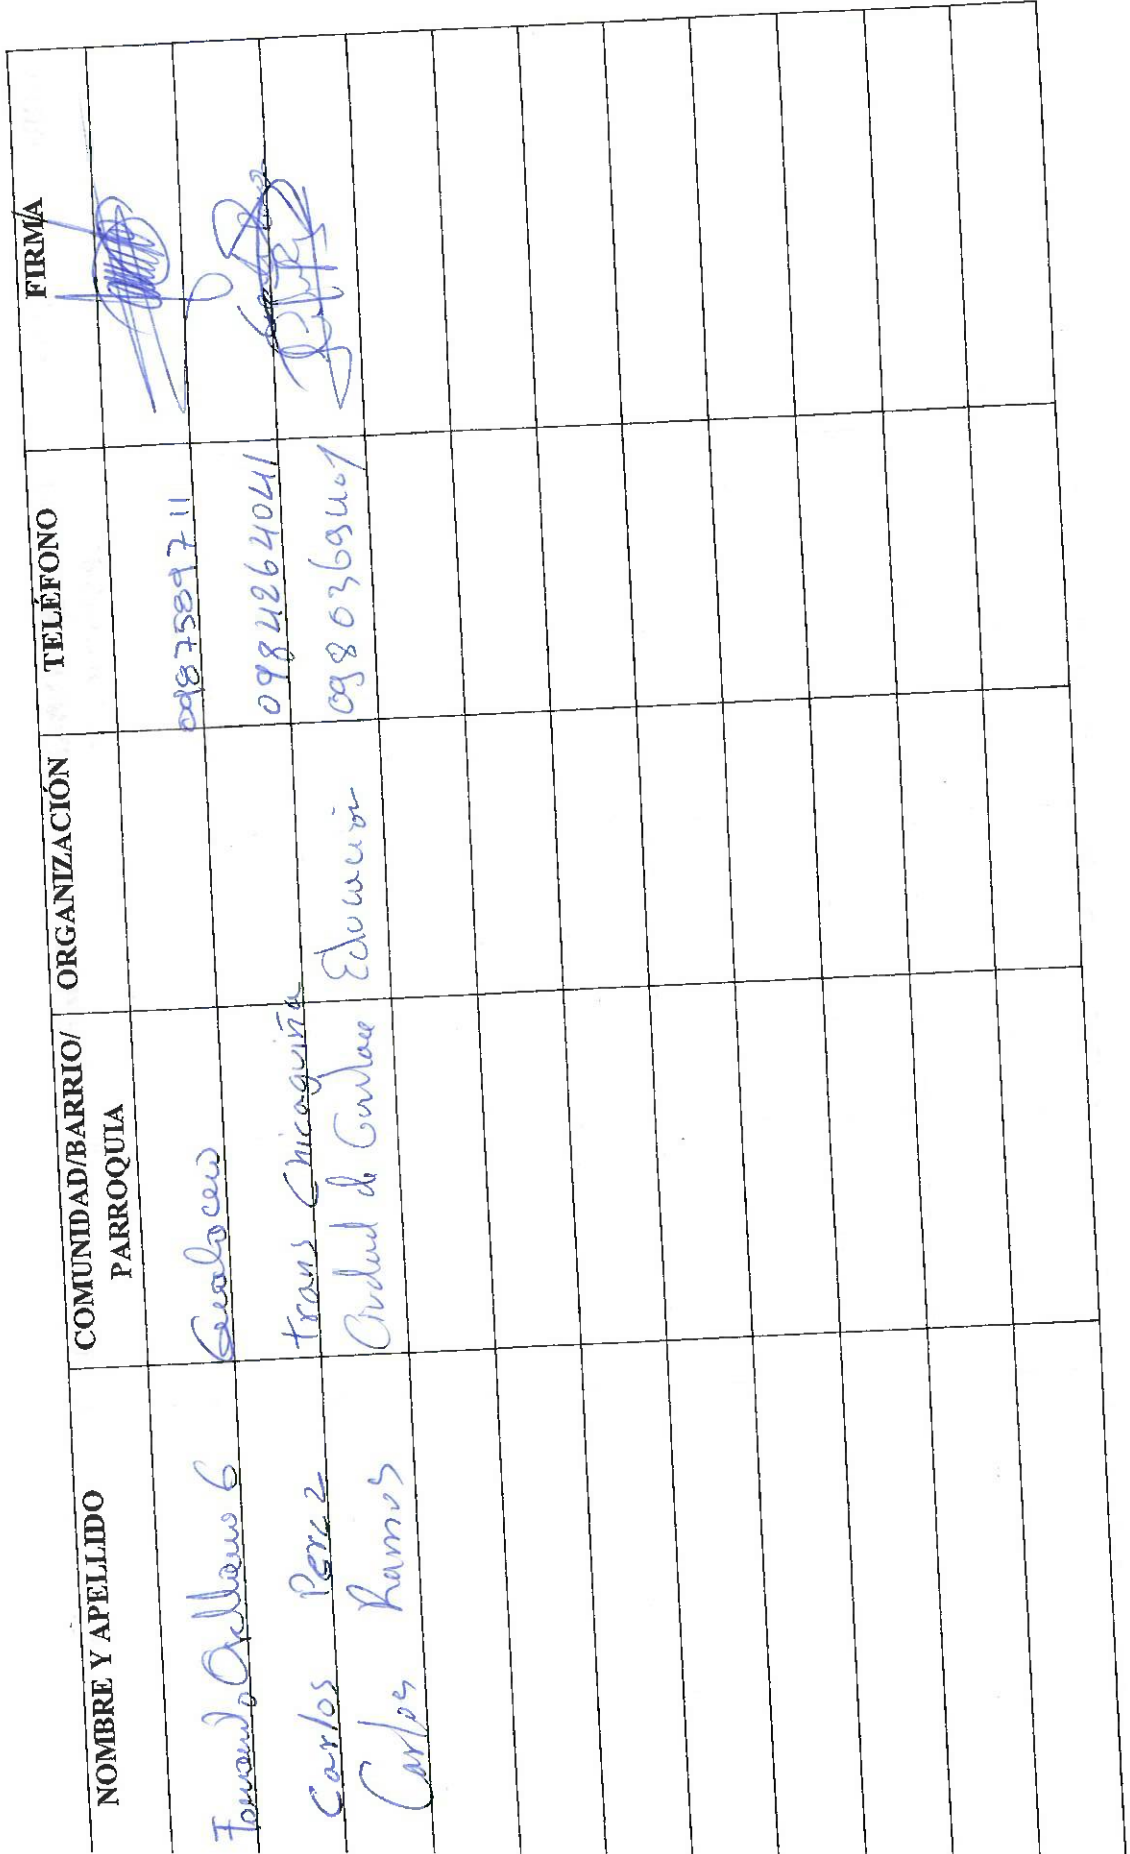 NOMBRE Y APELLIDO COMUNIDAD/BARRIO/ PARROQUIA ORGANIZACIÓN TELÉFONO FIRMA
Fernando Orellana G Gualaceo 0987589711
Carlos Perez trans Chicaguiña 0984264041
Carlos Ramos Ciudad de Educación 0980369401